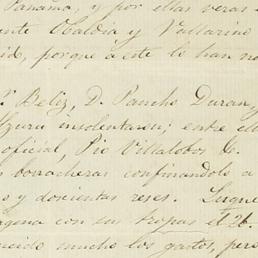 Panamá, y por ellas verás
ente Obaldía y Vallarino
id, porque a este lo han no
Beliz, D. Pancho Duran, y
Azuru insolentaron; entre el
oficial, Pio Villalobos &.
borracheras confinandolo a
s y doscientas reses. Luque
agena con sus tropas el 26.
ucido mucho los gastos, pero